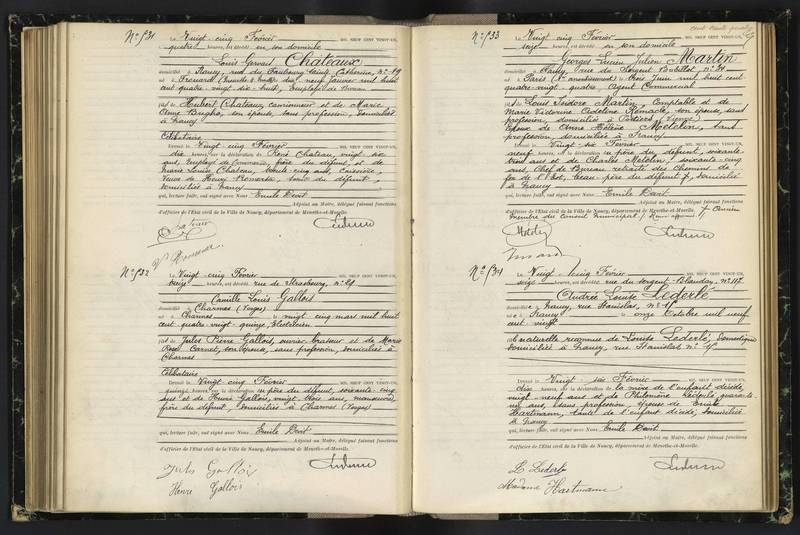 N° 531
Le Vingt cinq Février MIL NEUF CENT VINGT-UN,
quatre heures, est décédé en son domicile
Louis Gervais Chateaux
domicilié à Nancy, rue du Faubourg Sainte Catherine, n° 19
né à Frouard (Meurthe & Mlle) dix neuf janvier mil huit
cent quatre-vingt-dix-huit, Employé de
fils de Hubert Chateaux, camionneur et de Marie
Anne son épouse, sans profession, domiciliés
à Nancy
Célibataire
Dressé le Vingt cinq Février MIL NEUF CENT VINGT-UN,
dix heures, sur la déclaration de René Chateau, vingt six
ans, Employé de Commerce, frère du défunt et de
Marie Louise Chateau, trente-cinq ans, Caissière,
Veuve de Henri sœur du défunt,
domiciliés à Nancy
qui, lecture faite, ont signé avec Nous Emile Devit
Adjoint au Maire, délégué faisant fonctions
d'officier de l'Etat civil de la Ville de Nancy, département de Meurthe-et-Moselle.
N° 532
Le Vingt cinq Février MIL NEUF CENT VINGT-UN,
heures, est décédé rue de Strasbourg, n° 29
Camille Louis Gallois
domicilié à Charmes (Vosges)
né à Charmes le vingt cinq mars mil huit
cent quatre-vingt-quinze,
fils de Jules Pierre Gallois, ouvrier brasseur et de Marie
Rose Cornet, son épouse, sans profession, domiciliés à
Charmes
Célibataire
Dressé le Vingt cinq Février MIL NEUF CENT VINGT-UN,
quinze heures, sur la déclaration du père du défunt, soixante-cinq
ans et de Henri Gallois, vingt trois ans, manœuvre,
frère du défunt, domiciliés à Charmes (Vosges)
qui, lecture faite, ont signé avec Nous Emile Devit
Adjoint au Maire, délégué faisant fonctions
d'officier de l'Etat civil de la Ville de Nancy, département de Meurthe-et-Moselle.
Jules Gallois
Henri Gallois
N° 533
Le Vingt cinq Février MIL NEUF CENT VINGT-UN,
seize heures, est décédé en son domicile
Georges Lucien Julien Martin
domicilié à Nancy, rue du Sergent Bobillot n° 34
né à Paris trois Juin mil huit cent
quatre-vingt-quatre, Agent Commercial
fils de Louis Isidore Martin, Comptable et de
Marie Victorine son épouse, sans
profession, domiciliés à Poitiers (Vienne)
Epoux de Anne Hélène Metelin, sans
profession, domiciliée à Nancy
Dressé le Vingt-six Février MIL NEUF CENT VINGT-UN,
neuf heures, sur la déclaration du père du défunt, soixante-
trois ans et de Charles Metelin, soixante-cinq
ans, Chef de Bureau retraité des Chemins de
fer de l'Etat, beau-père du défunt, domicilié
à Nancy
qui, lecture faite, ont signé avec Nous Emile Devit
Adjoint au Maire, délégué faisant fonctions
d'officier de l'Etat civil de la Ville de Nancy, département de Meurthe-et-Moselle. Ancien
membre du Conseil municipal
N° 534
Le Vingt cinq Février MIL NEUF CENT VINGT-UN,
seize heures, est décédée rue du Sergent Blandan, n° 117
Andrée Louise Lederlé
domiciliée à Nancy, rue Stanislas, n° 45
née à Nancy le onze Octobre mil neuf
cent vingt
fille naturelle reconnue de Louise Lederlé, Domestique
domiciliée à Nancy, rue Stanislas n° 45
Dressé le Vingt six Février MIL NEUF CENT VINGT-UN,
dix heures, sur la déclaration de la mère de l'enfant décédé,
vingt neuf ans et de Philomène Lederlé, quarante-
un ans, sans profession, épouse de Emile
Hartmann, tante de l'enfant décédé, domiciliées
à Nancy
qui, lecture faite, ont signé avec Nous Emile Devit
Adjoint au Maire, délégué faisant fonctions
d'officier de l'Etat civil de la Ville de Nancy, département de Meurthe-et-Moselle.
L. Lederlé
Madame Hartmann